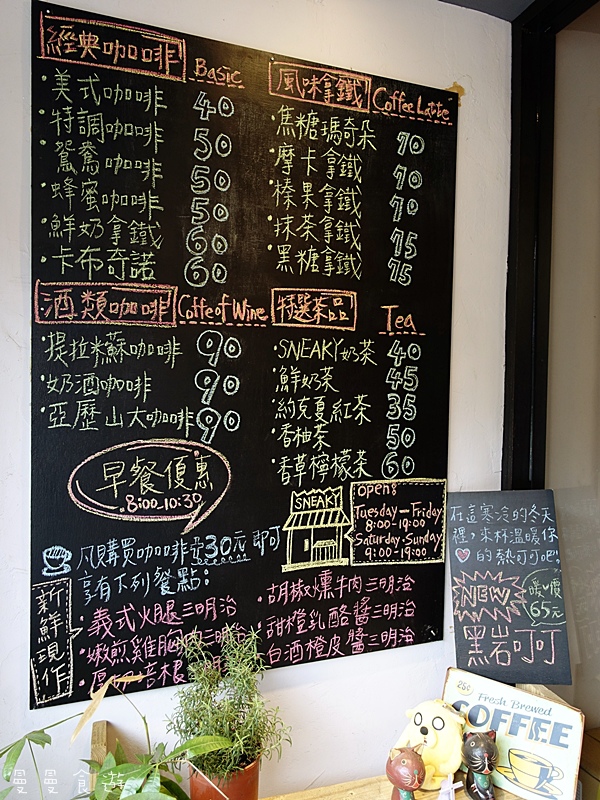 經典咖啡 Basic
·美式咖啡 40
·特調咖啡 50
·鴛鴦咖啡 50
·蜂蜜咖啡 50
·鮮奶拿鐵 60
·卡布奇諾 60
風味拿鐵 Coffee Latte
·焦糖瑪奇朵 70
·摩卡拿鐵 70
·榛果拿鐵 70
·抹茶拿鐵 75
·黑糖拿鐵 75
酒類咖啡 Coffee of Wine
·提拉米蘇咖啡 90
·奶酒咖啡 90
·亞歷山大咖啡 90
特選茶品 Tea
·SNEAKY奶茶 40
·鮮奶茶 45
·約克夏紅茶 35
·香柚茶 50
·香草檸檬茶 60
早餐優惠
8:00-10:30
SNEAKY
Open:
Tuesday-Friday
8:00-19:00
Saturday-Sunday
9:00-19:00
凡購買咖啡+30元即可
享有下列餐點:
新鮮現作
·義式火腿三明治
·嫩煎雞胸肉三明治
·培根三明治
·胡椒燻牛肉三明治
·甜橙乳酪醬三明治
·白酒橙皮醬三明治
在這寒冷的冬天
裡,來杯溫暖你
的熱可可吧!
NEW
暖心價
65元
黑岩可可
25¢
Fresh Brewed
COFFEE
慢慢食遊